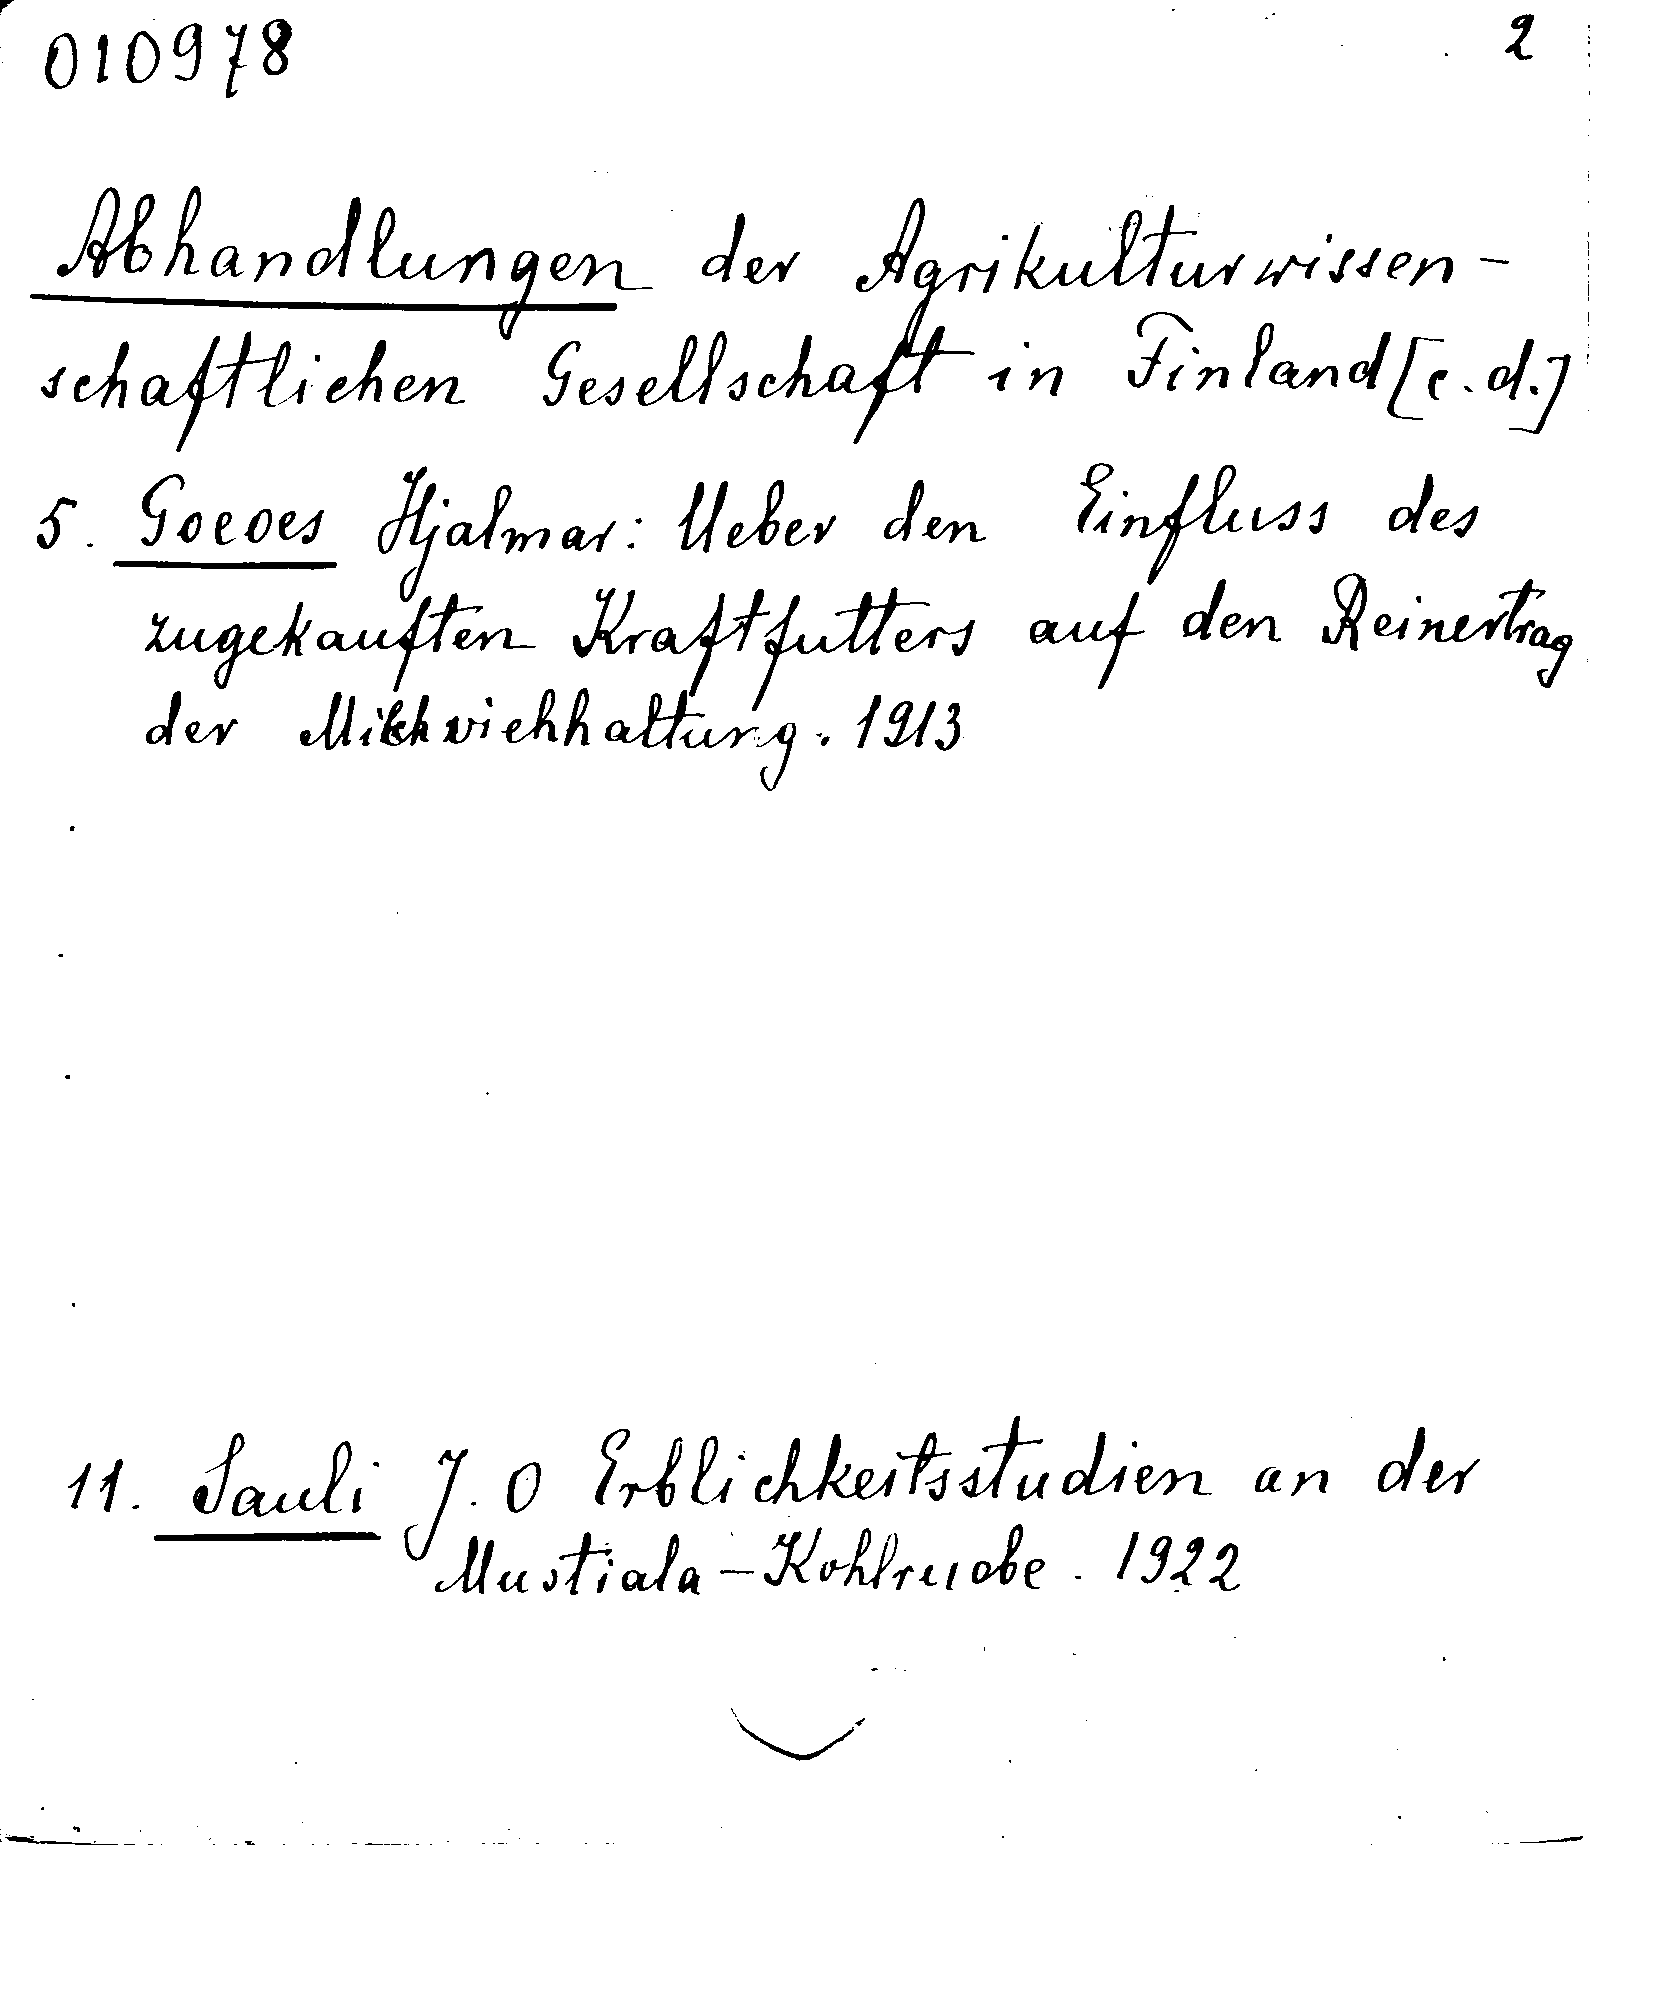 010978 2
Abhandlungen der Agrikulturwissen-
schaftlichen Gesellschaft in Finland [c.d.]
5. Goeoes Hjalmar: Ueber den Einfluss des
zugekauften Kraftfutters auf den Reinertrag
der Milchviehhaltung. 1913
11. Sauli J. O Erblichkeitsstudien an der
Mustiala-Kohlruebe. 1922